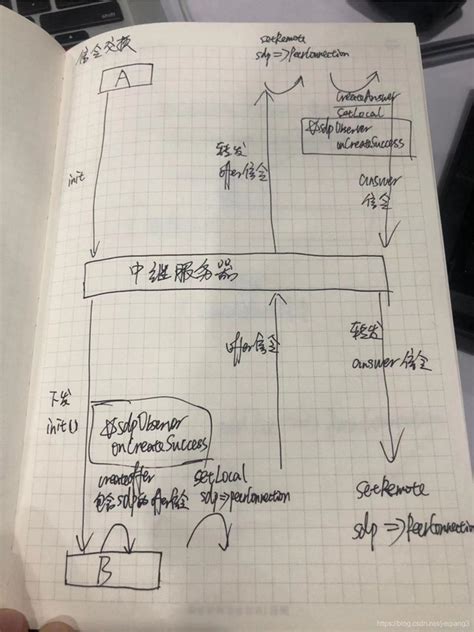 信令交换
A
setRemote
sdp => PeerConnection
createAnswer
setLocal
sdpObserver
onCreateSuccess
init
转发
offer信令
answer
信令
中继服务器
offer信令
转发
answer信令
下发
init()
sdpObserver
onCreateSuccess
createoffer
包含sdp的offer信令
setLocal
sdp => peerConnection
setRemote
sdp => PeerConnection
B